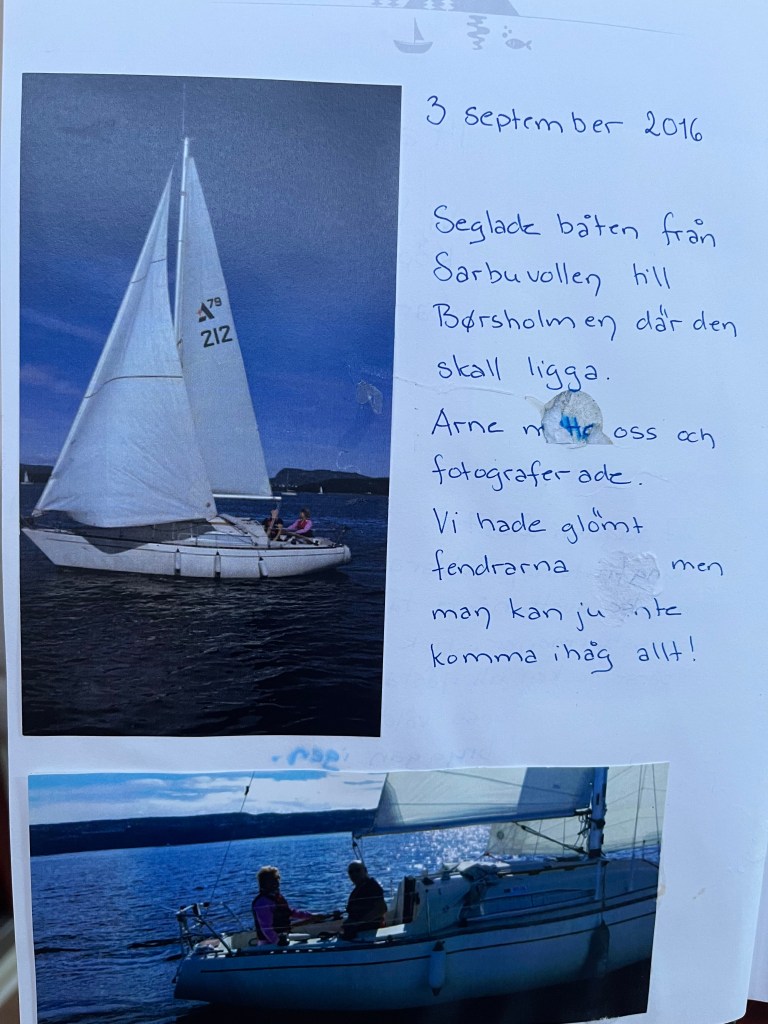 3 september 2016
Seglade båten från
Sarbuvollen till
Børsholmen där den
skall ligga.
Arne oss och
fotograferade.
Vi hade glömt
fendrarna men
man kan ju inte
komma ihåg allt!
A 79
212
igen.